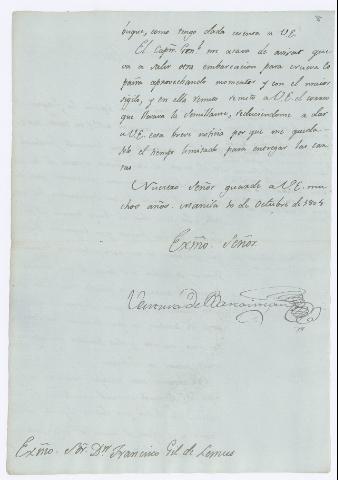 buque, como tengo dada cuenta a V.E.
El Capn. Genl. me acava de avisar que
va a salir otra embarcacion para
paña aprovechando momentos y con el maior
sigilo, y en ella remito a V.E. el
que llevava la reduciendome a dar
a V.E. esta breve noticia por que me queda
el tiempo limitado para entregar las car
tas
Nuestro Señor guarde a V.E. mu
chos años. Manila 10 de Octubre de
Exmo. Señor
Ventura de Barcaiztegui
Exmo. Sor. Dn. Francisco Gil de Lemus